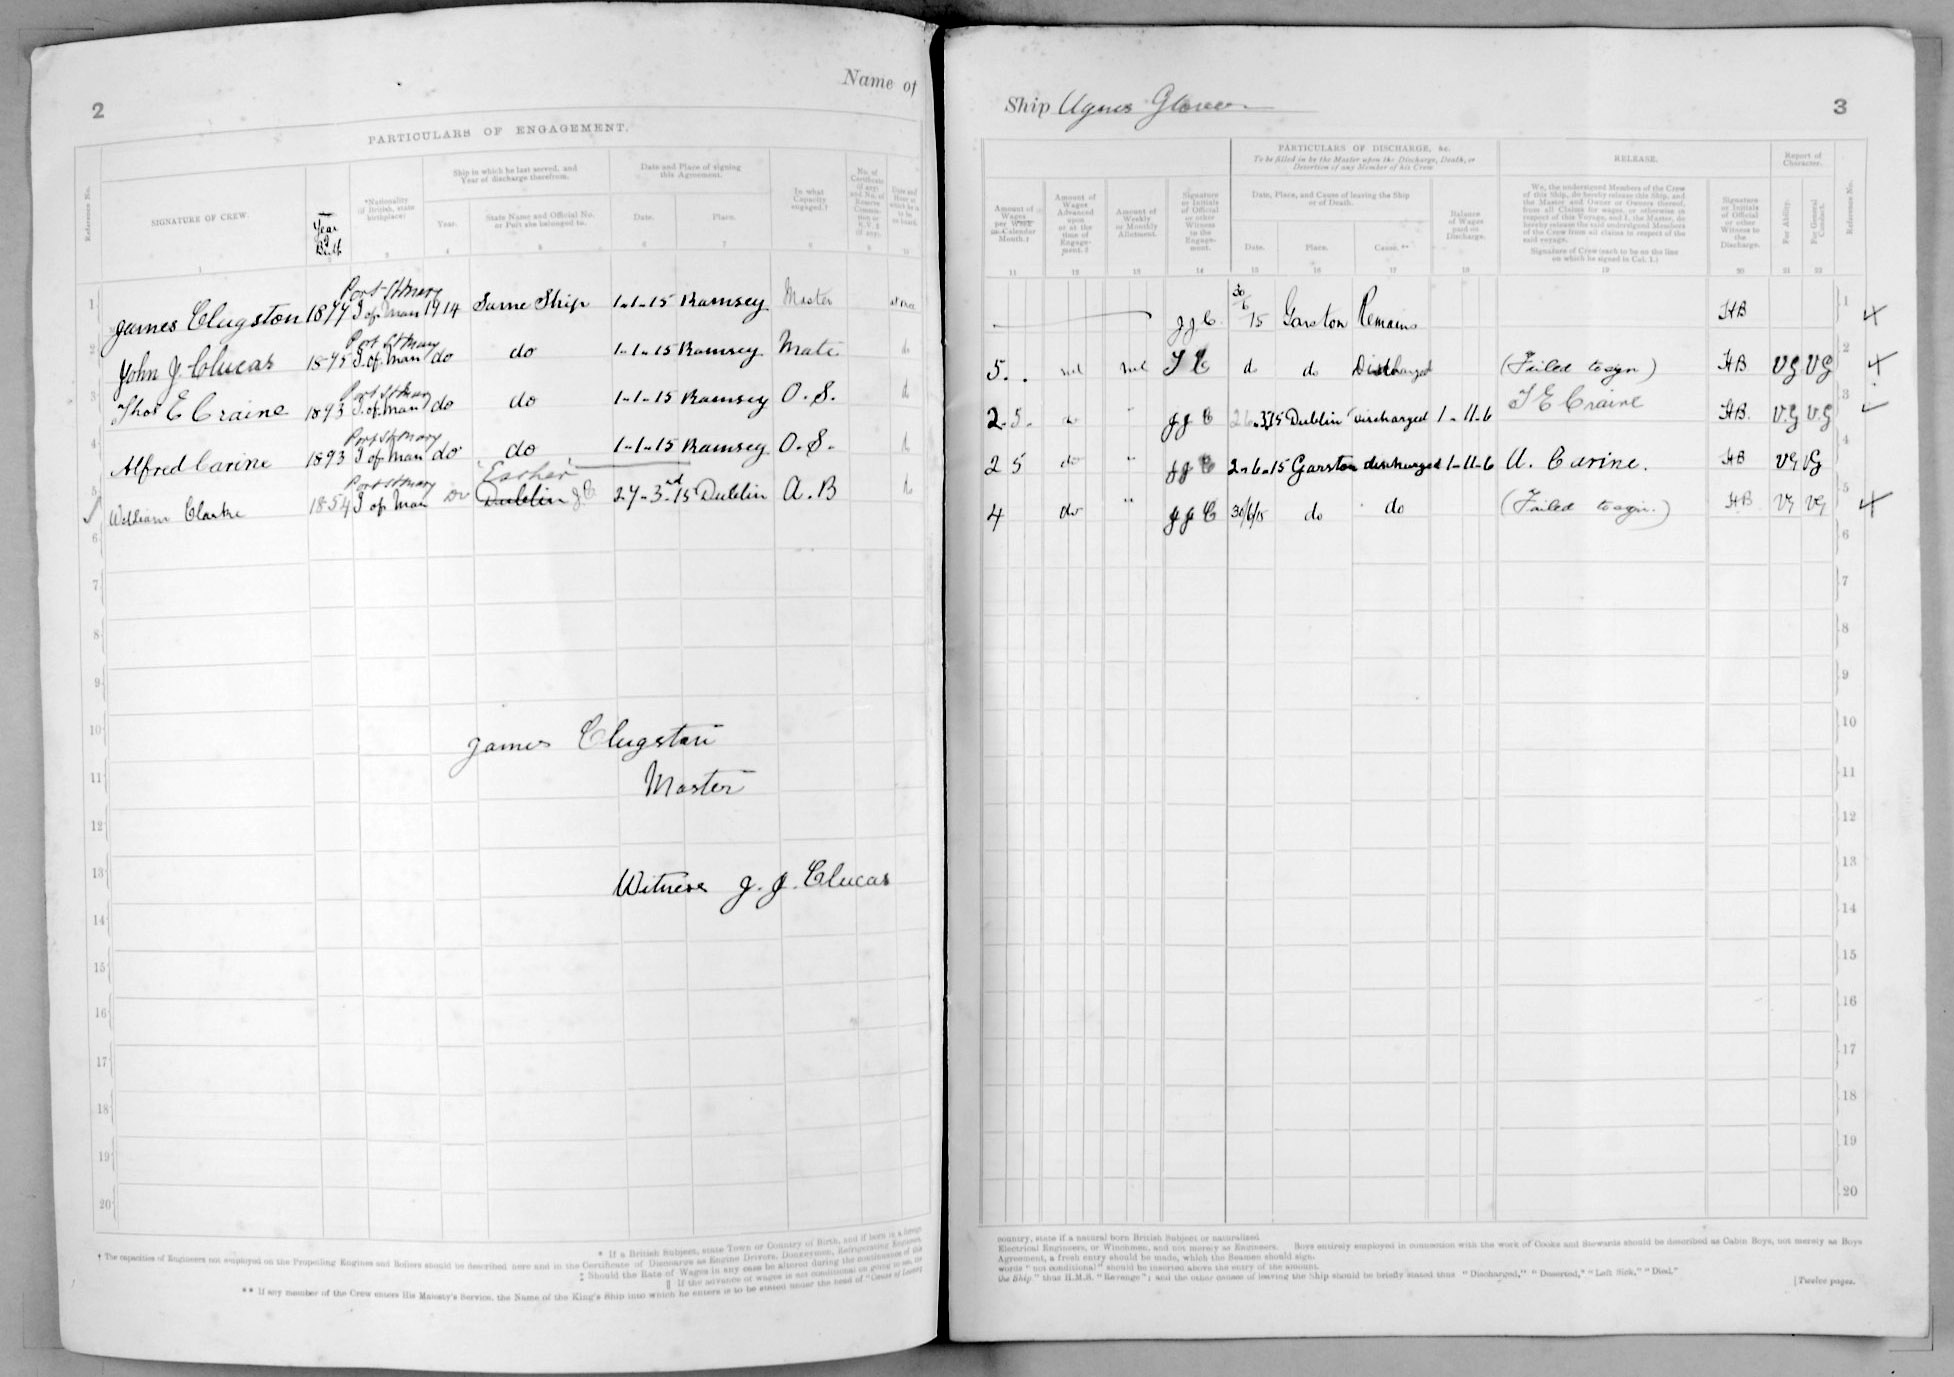 2
Name of
PARTICULARS OF ENGAGEMENT.
Reference No.
SIGNATURE OF CREW.
Year of Birth
*Nationality (if British, state birthplace)
Ship in which he last served, and Year of discharge therefrom.
Year.
State Name and Official No. or Port she belonged to.
Date and Place of signing this Agreement.
Date.
Place.
In what Capacity engaged.†
1 2 3 4 5 6 7 8 9 10
1 James Clugston 1877 Port St Mary I of Man 1914 Same Ship 1-1-15 Ramsey Master at once
2 John J. Clucas 1875 Port St Mary I. of. Man do do 1-1-15 Ramsey Mate do
3 Thos E Craine 1893 Port St Mary I. of. Man do do 1-1-15 Ramsey O. S. do
4 Alfred Carine 1893 Port St Mary I of Man do do 1-1-15 Ramsey O. S. do
5 William Clarke 1854 Port St Mary I of Man Do "Esther" Dublin J C 27-3rd-15 Dublin A. B do
6
7
8
9
10
James Clugston
11
Master
12
13
Witness J. J. Clucas
14
15
16
17
18
19
20
* If a British Subject, state Town or Country of Birth, and if born in a foreign
† The capacities of Engineers not employed on the Propelling Engines and Boilers should be described here and in the Certificate of Discharge as Engine Drivers, Donkeymen, Refrigerating Engineers,
‡ Should the Rate of Wages in any case be altered during the continuance of this
‖ If the advance of wages is not conditional on going to sea, the
** If any member of the Crew enters His Majesty's Service, the Name of the King's Ship into which he enters is to be stated under the head of "Cause of Leaving
Ship Agnes Glover
3
PARTICULARS OF DISCHARGE, &c.
To be filled in by the Master upon the Discharge, Death, or Desertion of any Member of his Crew
RELEASE.
Report of Character.
Amount of Wages per Week or Calendar Month.‡
Amount of Wages Advanced upon or at the time of Engagement.‖
Amount of Weekly or Monthly Allotment.
Signature or Initials of Official or other Witness to the Engagement.
Date, Place, and Cause of leaving the Ship or of Death.
Date.
Place.
Cause.**
Balance of Wages paid on Discharge.
We, the undersigned Members of the Crew of this Ship, do hereby release this Ship, and the Master and Owner or Owners thereof, from all Claims for wages, or otherwise in respect of this Voyage, and I, the Master, do hereby release the said undersigned Members of the Crew from all claims in respect of the said voyage.
Signature of Crew (each to be on the line on which he signed in Col. 1.)
Signature or Initials of Official or other Witness to the Discharge.
For Ability.
For General Conduct.
Reference No.
11 12 13 14 15 16 17 18 19 20 21 22
J J C. 30/6/15 Garston Remains HB 1
5 nil nil J C do do Discharged (Failed to sign) HB VG VG 2
2.5. do " J J C 26.3.15 Dublin discharged 1-11-6 T E Craine HB. V.G V.G 3
2 5 do " J J C 2-6-15 Garston discharged 1-11-6 A. Carine. HB VG VG 4
4 do " J J C 30/6/15 do do (Failed to sign.) HB VG VG 5
6
7
8
9
10
11
12
13
14
15
16
17
18
19
20
country, state if a natural born British Subject or naturalized
Electrical Engineers, or Winchmen, and not merely as Engineers. Boys entirely employed in connection with the work of Cooks and Stewards should be described as Cabin Boys, not merely as Boys
Agreement, a fresh entry should be made, which the Seamen should sign.
words "not conditional" should be inserted above the entry of the amount.
the Ship." thus H.M.S. "Revenge"; and the other causes of leaving the Ship should be briefly stated thus "Discharged," "Deserted," "Left Sick," "Died."
[Twelve pages.